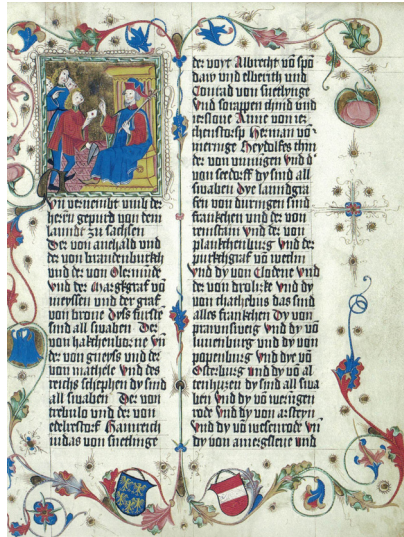 vn vernembt vmb der
herrn gepurd von dem
lanndt zu sachsen
Der von anehald vnd
der von brandenburckh
vnd der von Olermūde
Vnd der Margkgraf vō
meyssen vnd der graf
von brone dyss furste
sind all swaben Der
von hakhenborne vn̄
der von gneyss vnd der
von mathele Vnd des
reichs schephen dy sind
all swaben Der von
trebulo vnd der von
edelerstorf Hainreich
iudas von snetlinge
der voyt Albrecht vō spō
daw vnd elberth vnd
Conrad von snetlynge
Vnd scrappen chind vnd
Anne von
Herman vō
meringe Heydolfes chin
der von vnningen Vnd d̄
von seedorff dy sind all
swaben Dye lanndgra
fen von duringen sind
frankchen vnd der von
reinstain Vnd der von
plankchenburg Vnd der
purckhgraf vō wetin
Vnd dy von Clodene Vnd
der von drolizke Vnd dy
von chathebus das sind
alles frankchen Dy von
prawnsweig vnd dy vō
lunenburg vnd dy von
popenburg Vnd dy vō
Osterburg Vnd dy vō al
tenhuzen dy sind all swa
ben Vnd dy vō weringen
rode Vnd dy von arsteyn
Vnd dy vō wesenrode vn̄
dy von amerslene vnd